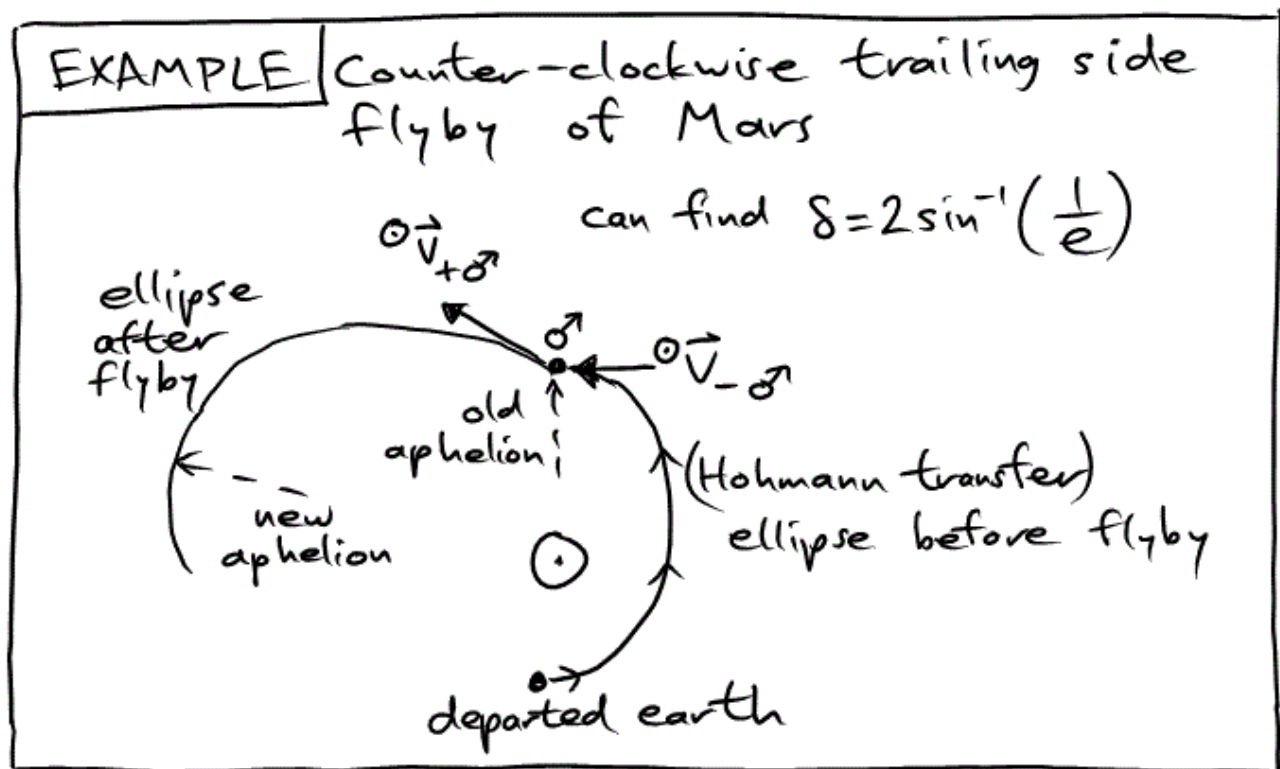 EXAMPLE Counter-clockwise trailing side
flyby of Mars
can find δ = 2 sin⁻¹(1/e)
☉V⃗₊♂
ellipse
after
flyby
♂
☉V⃗₋♂
old
aphelion
(Hohmann transfer)
ellipse before flyby
new
aphelion
departed earth